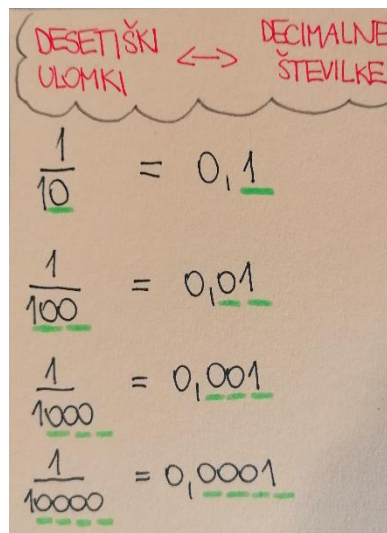 DESETIŠKI ULOMKI <-> DECIMALNE ŠTEVILKE
1/10 = 0,1
1/100 = 0,01
1/1000 = 0,001
1/10000 = 0,0001